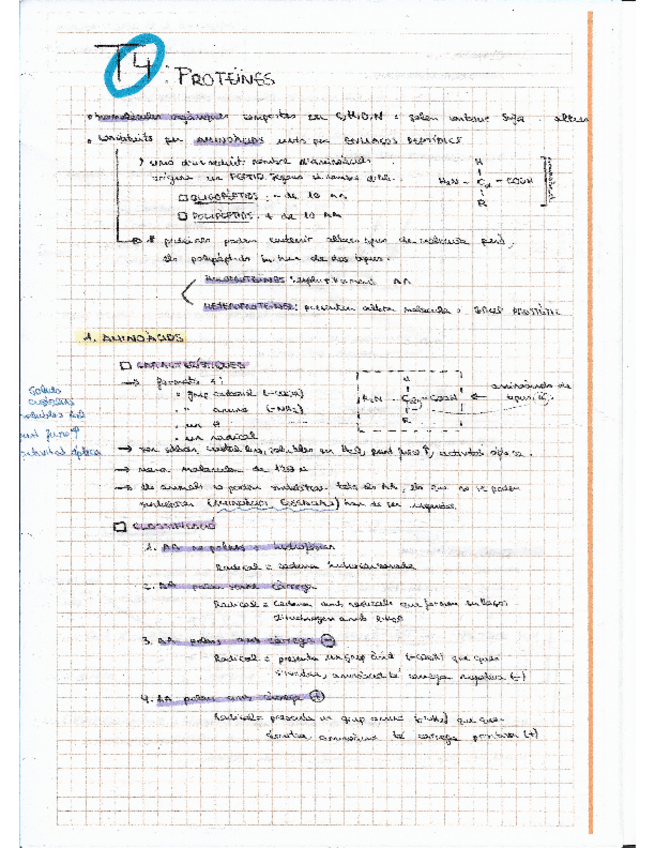 T4: PROTEÏNES
• biomolècules orgàniques compostes per C,H,O,N i solen contenir S i/o altres
• constituïts per AMINOÀCIDS units per ENLLAÇOS PEPTÍDICS
unió d'un reduït nombre d'aminoàcids
origina un PÈPTID. Segons el nombre
□ OLIGOPÈPTIDS: - de 10 AA
□ POLIPÈPTIDS: + de 10 AA
H
H₂N - Cα - COOH
R
aminoàcid
proteïnes poden contenir altres tipus de molècula però,
els polipèptids de dos tipus.
HOLOPROTEÏNES: AA
HETEROPROTEÏNES: presenten altra molècula: GRUP PROSTÈTIC
1. AMINOÀCIDS
□ CARACTERÍSTIQUES
→ formats x:
• grup carboxil (-COOH)
• " amino (-NH₂)
• un H
• un radical
H
H₂N - Cα - COOH
R
← aminoàcids de
Sòlids
cristal·lins
solubles H₂O
punt fusió ↑
activitat òptica
→ són sòlids, cristal·lins, solubles en H₂O, punt fusió ↑, activitat òptica.
→ massa molecular de
→ els animals no poden sintetitzar tots els AA, els que no es poden
sintetitzar (AMINOÀCIDS ESSENCIALS) han de ser ingerits.
□ CLASSIFICACIÓ
1. AA no polars o hidròfobs
Radical = cadena hidrocarbonada
2. AA polars sense càrrega
Radical = Cadena amb radicals que formen enllaços
d'hidrogen amb
3. AA polars amb càrrega ⊖
Radical = presenta un grup àcid (-COOH) que quan
s'ionitza, aminoàcid té càrrega negativa (-)
4. AA polars amb càrrega ⊕
Radical = presenta un grup amino (-NH₂) que quan
s'ionitza aminoàcid té càrrega positiva (+)